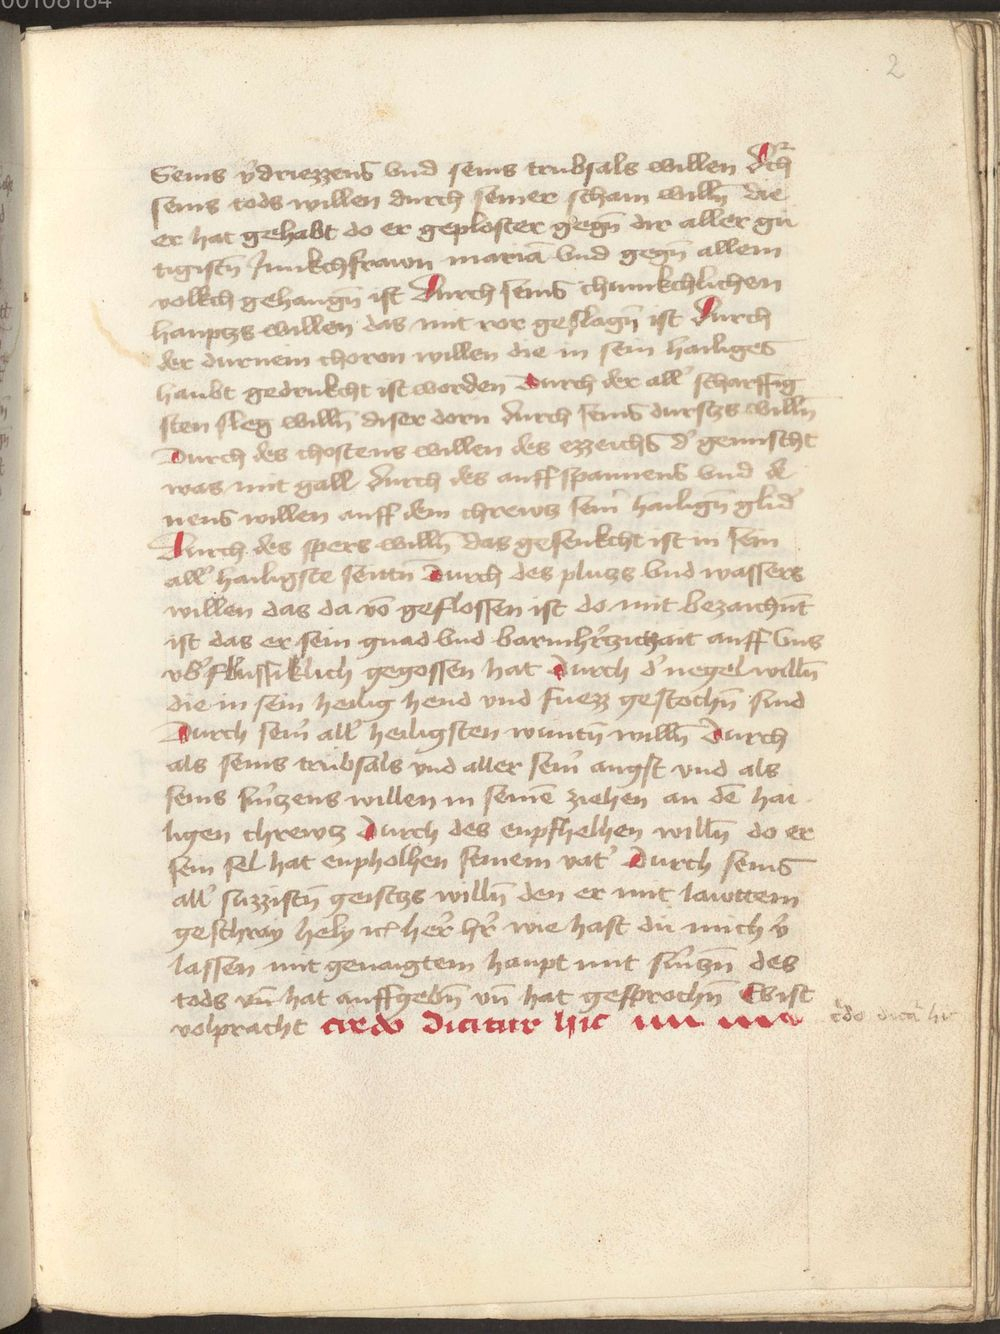 00108184
2
Seins v̓driezzens vnd seins trubsals willen Dᵒch
seins tods willen durch seiner scham willn̄ die
er hat gehabt do er geploster gegn̄ dir aller gu
tigistn̄ Junkchfrawn mariā vnd gegn̄ allem
volkch gehangn̄ ist Durch seins chunikchlichen
hauptzs willen das mit ror geslagn̄ ist Durch
der durnein choron willen die in sein hailiges
haubt gedrukcht ist worden Durch der all̓ scharffig
sten sleg willn̄ diser dorn durch seins durstzs willn̄
Durch des chostens willen des ezzeichs d̓ gemischt
was mit gall durch des auffspannens vnd de
nens willen auff dem chrewtz sein̓ hailign̄ glid̓
Durch des spers willn̄ das gesenkcht ist in sein
all̓ hailigste seittn̄ Durch des plutzs vnd wassers
willen das da vō geflossen ist do mit bezaichn̄t
ist das er sein gnad vnd barmhr̓tzichait auff vns
vb̓flussiklich gegossen hat Durch d̓ negel willn̄
die in sein heilig hend vnd fuezz gestochn̄ sind
Durch sein̓ all̓ heiligsten wuntn̄ willn̄ Durch
als seins trubsals vnd aller sein̓ angst vnd als
seins sm̓tzens willen in seinē ziehen an dē hai
ligen chrewtz Durch des enpfhelhen willn̄ do er
sein sel hat enpholhen seinem vat̓ Durch seins
all̓ suzzistn̄ geistzs willn̄ den er mit lawttem
geschray hely ic̄ her̓ hr̓ wie hast du mich v̓
lassen mit genaigtem haupt mit sm̓tzn̄ des
tods vn̄ hat auffgebn̄ vn̄ hat gesprochn̄ Es ist
volpracht credo dicitur hic
c̓do dicit̓ hic